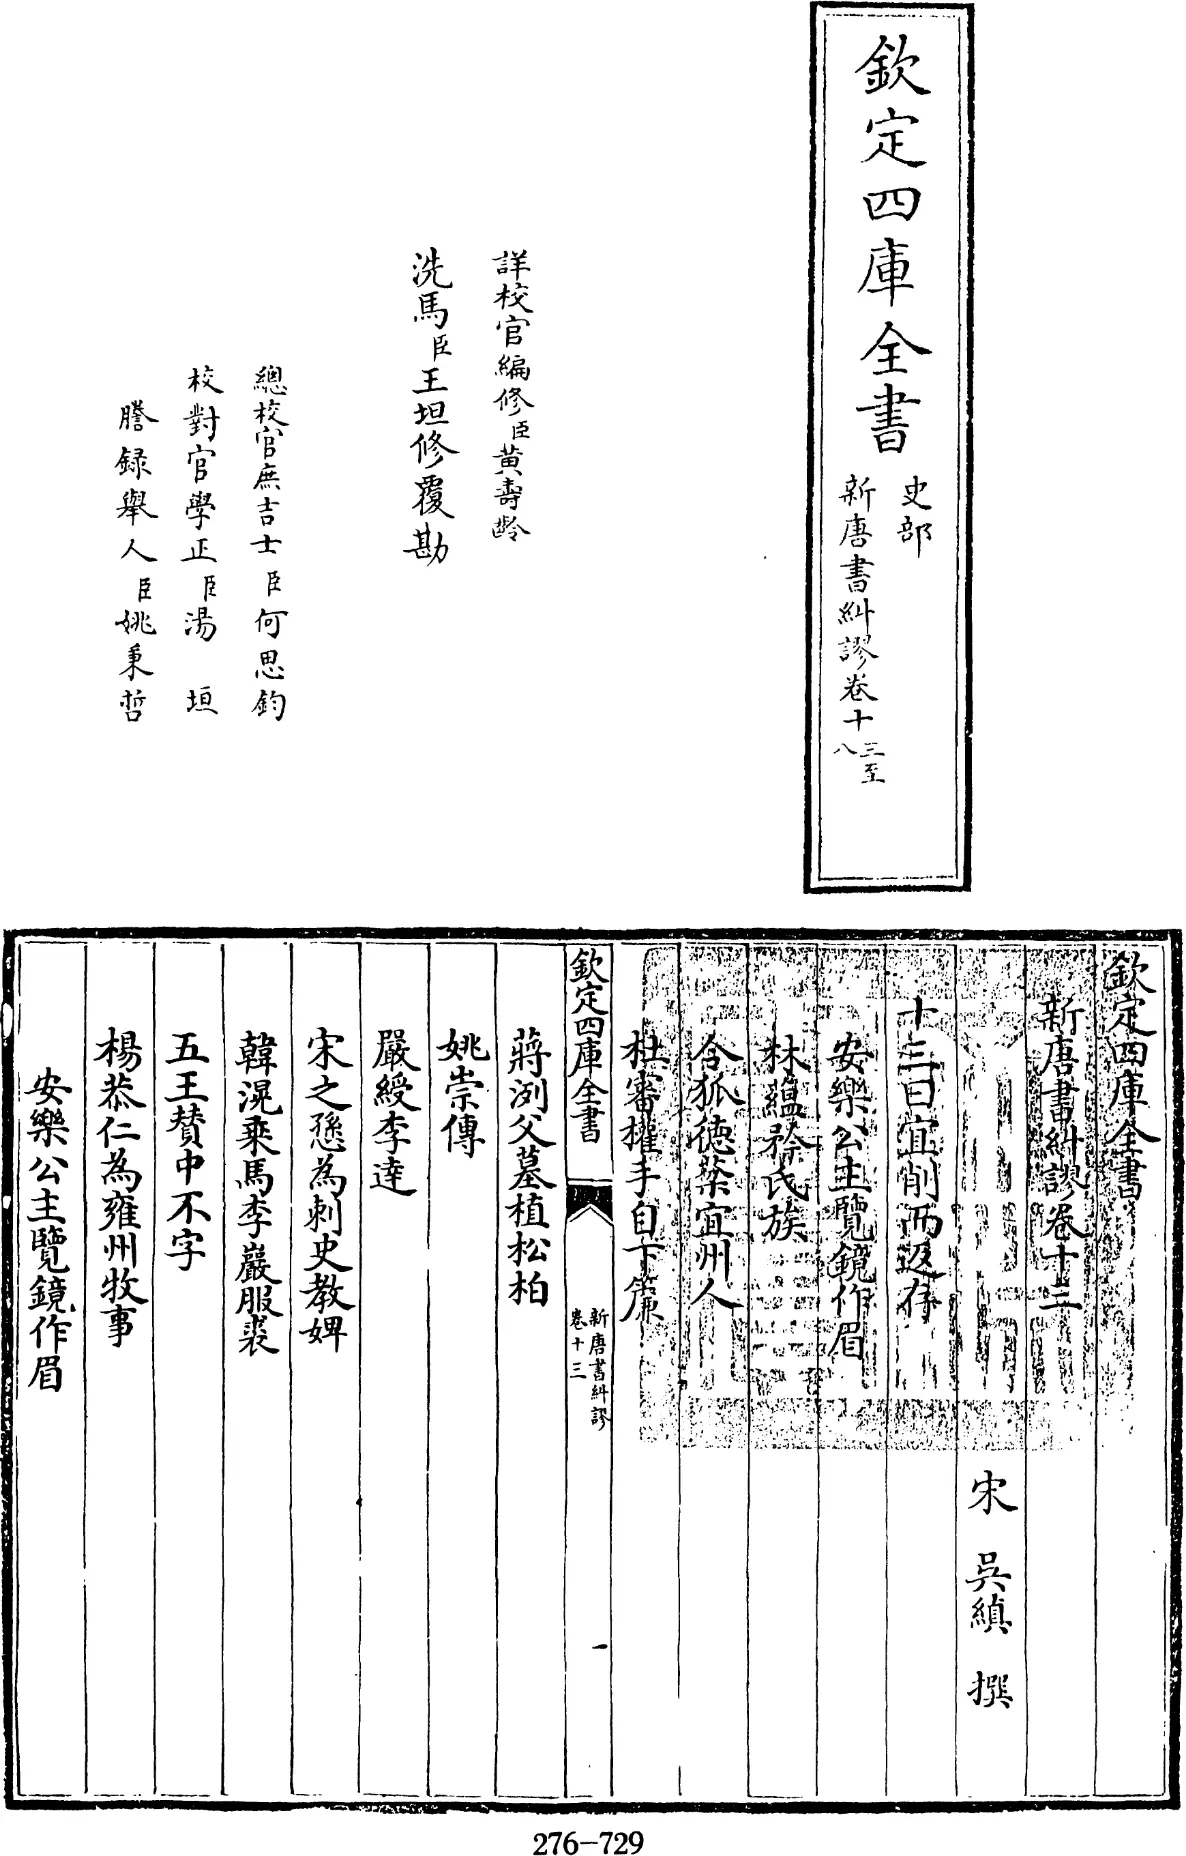 欽定四庫全書
史部
新唐書糾謬卷十三至
八
詳校官編修臣黄壽齡
洗馬臣王坦修覆勘
總校官庶吉士臣何思鈞
校對官學正臣湯垣
謄録舉人臣姚秉哲
欽定四庫全書
新唐書糾謬卷十三
宋 吳縝 撰
十三曰宜削而返存
安樂公主覽鏡作眉
林藴矜氏族
令狐德棻宜州人
杜審權手自下簾
欽定四庫全書
新唐書糾謬
卷十三
蔣洌父墓植松柏
姚崇傳
嚴綬李逹
宋之愻為刺史教婢
韓滉乘馬李巖服裘
五王賛中不字
楊恭仁為雍州牧事
安樂公主覽鏡作眉
276-729